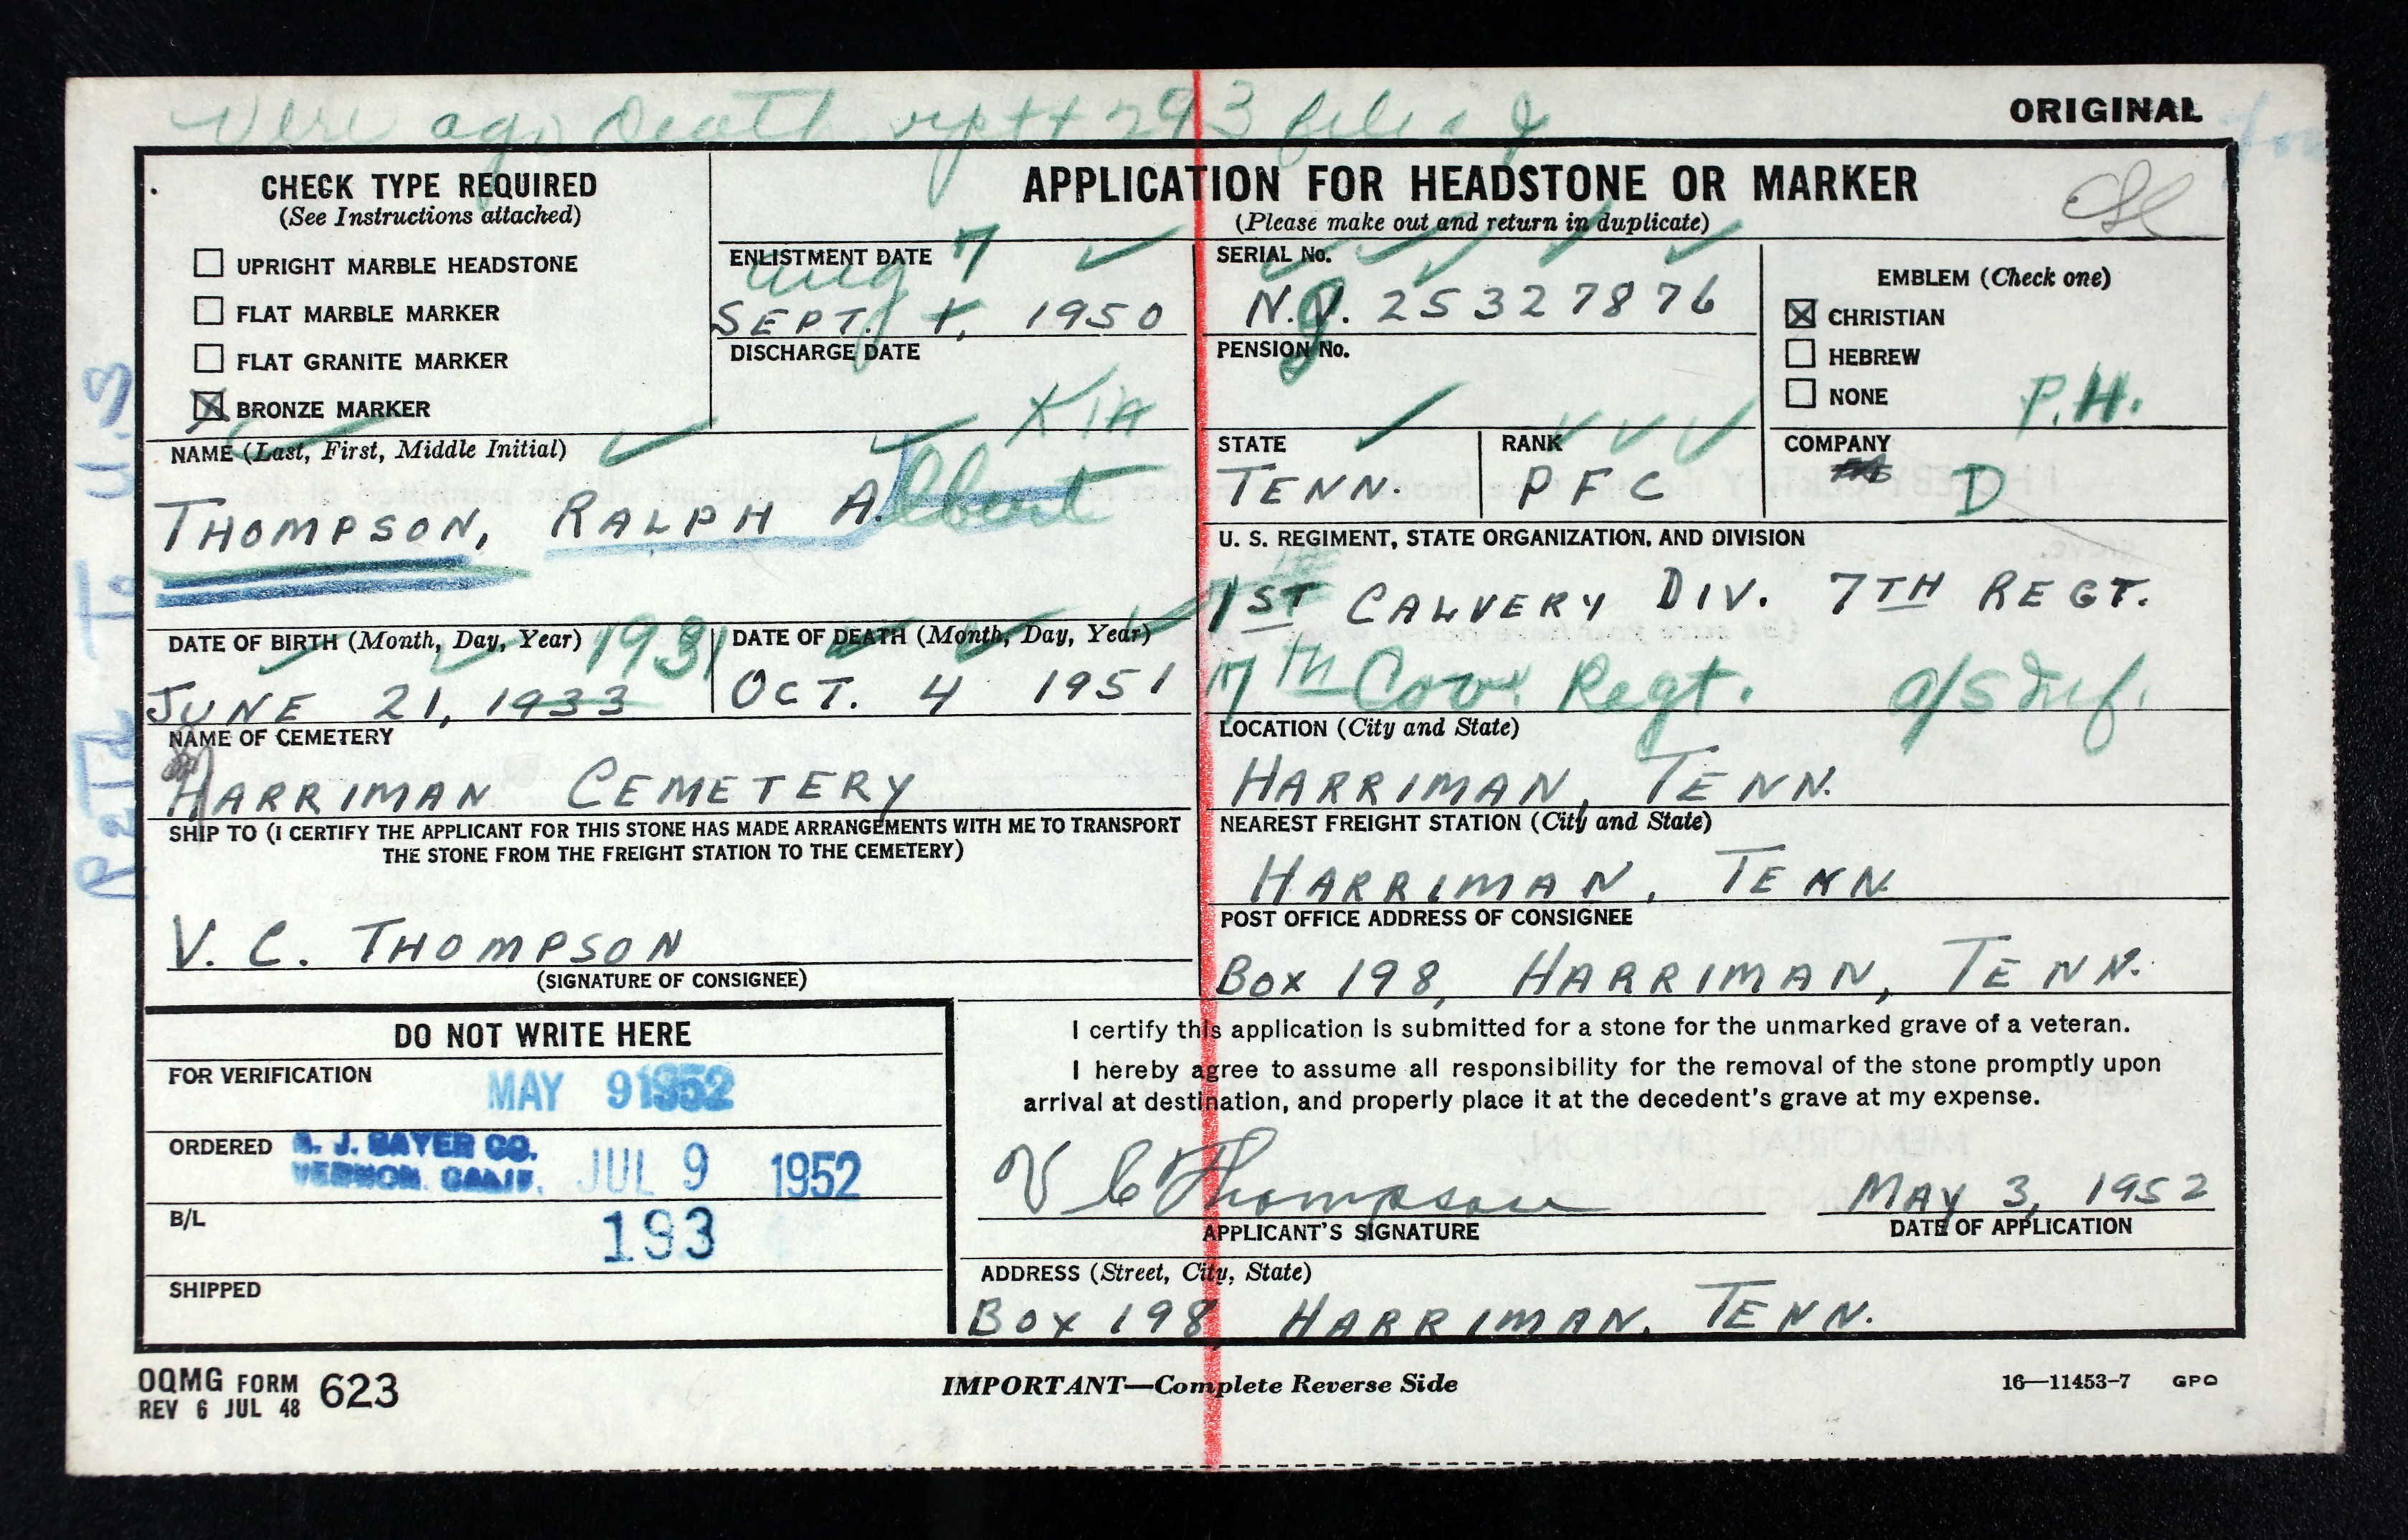 Veri ag. Death rpt # 293 file
ORIGINAL
CHECK TYPE REQUIRED
(See Instructions attached)
UPRIGHT MARBLE HEADSTONE
FLAT MARBLE MARKER
FLAT GRANITE MARKER
BRONZE MARKER
APPLICATION FOR HEADSTONE OR MARKER
(Please make out and return in duplicate)
ENLISTMENT DATE
Aug 7
SEPT. 1, 1950
DISCHARGE DATE
KIA
SERIAL No.
N.G. 25327876
PENSION No.
EMBLEM (Check one)
CHRISTIAN
HEBREW
NONE
P.H.
NAME (Last, First, Middle Initial)
THOMPSON, RALPH A. Albert
STATE
TENN.
RANK
PFC
COMPANY
D
U. S. REGIMENT, STATE ORGANIZATION, AND DIVISION
1ST CALVERY DIV. 7TH REGT.
7th Cav. Regt. a/s Inf.
DATE OF BIRTH (Month, Day, Year)
1931
JUNE 21, 1933
DATE OF DEATH (Month, Day, Year)
OCT. 4 1951
NAME OF CEMETERY
HARRIMAN CEMETERY
LOCATION (City and State)
HARRIMAN, TENN.
SHIP TO (I CERTIFY THE APPLICANT FOR THIS STONE HAS MADE ARRANGEMENTS WITH ME TO TRANSPORT
THE STONE FROM THE FREIGHT STATION TO THE CEMETERY)
V. C. THOMPSON
(SIGNATURE OF CONSIGNEE)
NEAREST FREIGHT STATION (City and State)
HARRIMAN, TENN
POST OFFICE ADDRESS OF CONSIGNEE
BOX 198, HARRIMAN, TENN.
DO NOT WRITE HERE
FOR VERIFICATION
MAY 9 1952
ORDERED
A. J. BAYER CO.
VERNON CALIF.
JUL 9 1952
B/L
193
SHIPPED
I certify this application is submitted for a stone for the unmarked grave of a veteran.
I hereby agree to assume all responsibility for the removal of the stone promptly upon
arrival at destination, and properly place it at the decedent's grave at my expense.
V C Thompson
APPLICANT'S SIGNATURE
MAY 3, 1952
DATE OF APPLICATION
ADDRESS (Street, City, State)
BOX 198, HARRIMAN, TENN.
OQMG FORM 623
REV 6 JUL 48
IMPORTANT—Complete Reverse Side
16—11453-7 GPO
RETD TO U.S